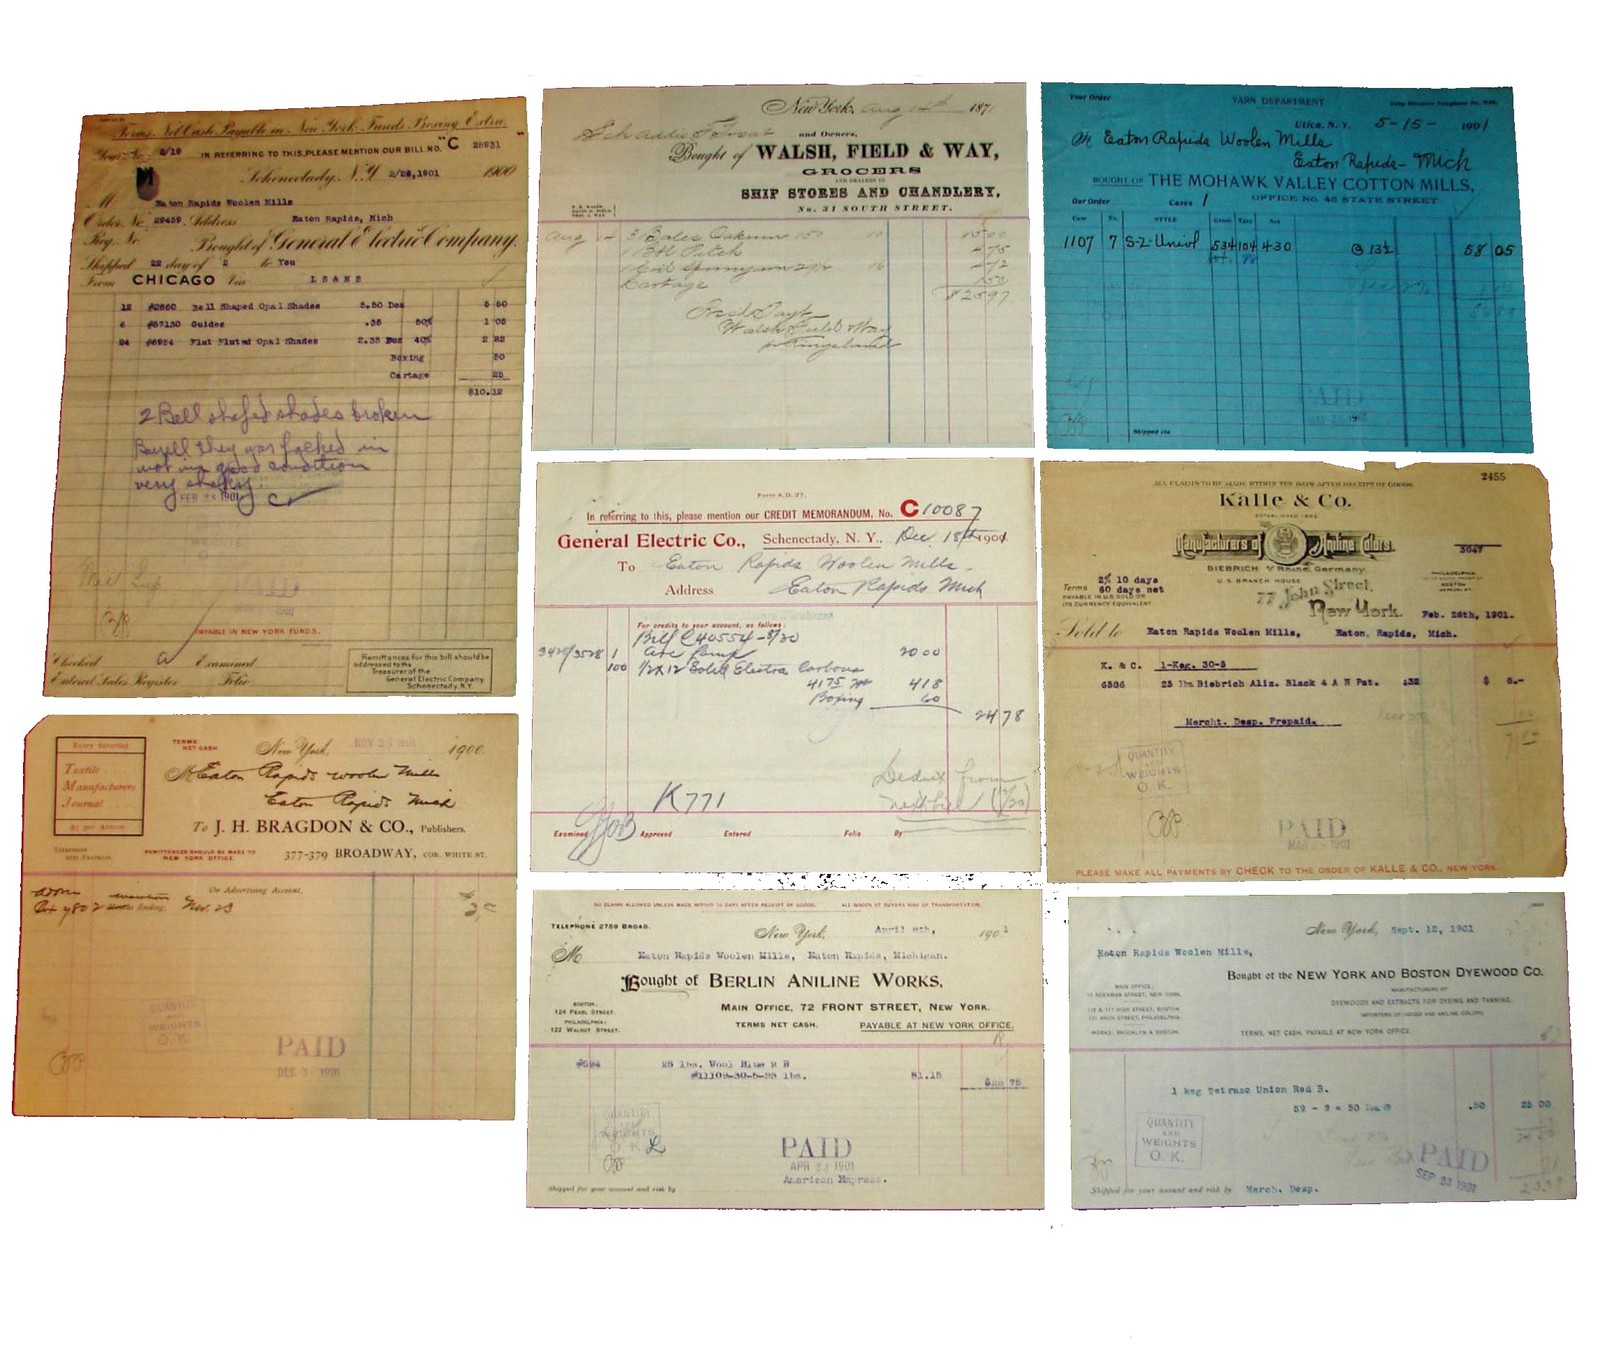 Terms Net Cash Payable in New York Funds Boxing Extra.
Your No. 2/19 IN REFERRING TO THIS, PLEASE MENTION OUR BILL NO. "C 28931
Schenectady, N.Y. 2/26,1901 1900
M Eaton Rapids Woolen Mills
Order No. 29459 Address Eaton Rapids, Mich
Req. No. Bought of General Electric Company.
Shipped 22 day of 2 to You
From CHICAGO Via
12 #2660 Bell Shaped Opal Shades 5.50 Doz 5 50
6 #57130 Guides .35 50% 1 05
24 #6954 Flat Fluted Opal Shades 2.35 Doz 40% 2 82
Boxing 50
Cartage 25
$10.12
2 Bell shaped shades broken
Barell they was packed in
was in good condition
very shakey.
FEB 28 1901
PAID
PAYABLE IN NEW YORK FUNDS.
Checked Examined
Entered Sales Register Folio
Remittances for this bill should be
addressed to the
Treasurer of the
General Electric Company
Schenectady, N.Y.
New York, Aug 14th 187
and Owners,
Bought of WALSH, FIELD & WAY,
GROCERS
AND DEALERS IN
SHIP STORES AND CHANDLERY,
No. 31 SOUTH STREET.
Aug 14 3 Bales Oakum 150 10 1500
1 Bbl Pitch 475
1 Coil Spunyarn 29½ 16 472
Cartage 150
$2597
Recd Payt
Walsh Field & Way
Your Order YARN DEPARTMENT
Utica, N.Y. 5-15- 1901
M Eaton Rapids Woolen Mills
Eaton Rapids- Mich
BOUGHT OF THE MOHAWK VALLEY COTTON MILLS,
Our Order Cases 1 OFFICE NO. 45 STATE STREET.
No. STYLE Gross Tare Net
1107 7 S-2-Univl 534 104 430 @ 13½ 58 05
PAID
Shipped via
Form A.D. 27.
In referring to this, please mention our CREDIT MEMORANDUM, No. C10087
General Electric Co., Schenectady, N.Y., Dec. 18th 1901
To Eaton Rapids Woolen Mills.
Address Eaton Rapids Mich
For credits to your account, as follows:
Bill C40554-8/30
3428/3528 1 Arc Lamp 2000
100 1/2x12 Solid Electra Carbons
4175 418
Boxing 60
2478
Deduct from
next bill
K771
Examined Approved Entered Folio By
2455
ALL CLAIMS TO BE MADE WITHIN TEN DAYS AFTER RECEIPT OF GOODS.
Kalle & Co.
Manufacturers of Aniline Colors.
3047
BIEBRICH o/Rhine, Germany.
U.S. BRANCH HOUSE
Terms 2% 10 days
60 days net
PAYABLE IN U.S. GOLD OR
ITS CURRENCY EQUIVALENT
77 John Street,
New York. Feb. 26th, 1901.
PHILADELPHIA
BOSTON
Sold to Eaton Rapids Woolen Mills, Eaton, Rapids, Mich.
K. & C. 1-Keg. 30-5
6586 25 lbs Biebrich Aliz. Black 4 A N Pat. .32 $ 8.-
Mercht. Desp. Prepaid.
QUANTITY
AND
WEIGHTS
O.K.
PAID
PLEASE MAKE ALL PAYMENTS BY CHECK TO THE ORDER OF KALLE & CO., NEW YORK.
Every Saturday
Textile
Manufacturers
Journal
TERMS
NET CASH
New York, NOV 25 1901 1900
M Eaton Rapids Woolen Mills
Eaton Rapids Mich
To J. H. BRAGDON & CO., Publishers.
REMITTANCES SHOULD BE MADE TO
NEW YORK OFFICE
377-379 BROADWAY, COR. WHITE ST.
On Advertising Account,
Ending Nov. 23
QUANTITY
AND
WEIGHTS
O.K.
PAID
DEC 3 - 1901
NO CLAIMS ALLOWED UNLESS MADE WITHIN 10 DAYS AFTER RECEIPT OF GOODS. ALL GOODS AT BUYERS RISK OF TRANSPORTATION.
TELEPHONE 2759 BROAD.
New York, April 8th, 1901
M Eaton Rapids Woolen Mills, Eaton Rapids, Michigan.
Bought of BERLIN ANILINE WORKS,
BOSTON:
124 PEARL STREET.
PHILADELPHIA:
122 WALNUT STREET.
MAIN OFFICE, 72 FRONT STREET, NEW YORK.
TERMS NET CASH. PAYABLE AT NEW YORK OFFICE.
25 lbs. Wool Blue R B
#11109-30-5-25 lbs. $1.15 $28 75
QUANTITY
AND
WEIGHTS
O K
PAID
APR 23 1901
American Express.
Shipped for your account and risk by
New York, Sept. 12, 1901
Eaton Rapids Woolen Mills,
Bought of the NEW YORK AND BOSTON DYEWOOD CO.
MANUFACTURERS OF
DYEWOODS AND EXTRACTS FOR DYEING AND TANNING.
IMPORTERS OF INDIGO AND ANILINE COLORS.
MAIN OFFICE:
WORKS: BROOKLYN & BOSTON.
TERMS, NET CASH, PAYABLE AT NEW YORK OFFICE.
1 keg Tetrazo Union Red B.
59 - 9 = 50 lbs @ .50 25 00
QUANTITY
AND
WEIGHTS
O.K.
PAID
SEP 23 1901
Shipped for your account and risk by Merch. Desp.